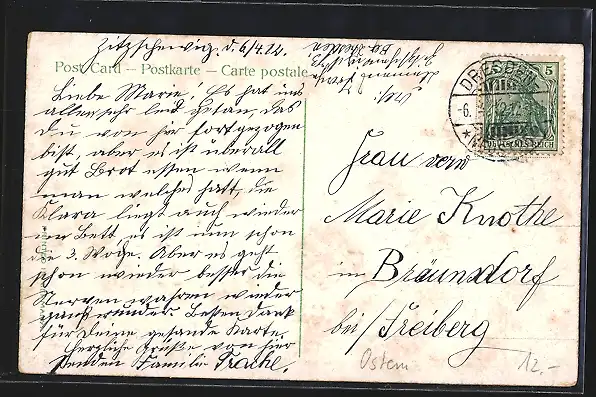 Zitzschewig. d. 6/4.12.
Post Card – Postkarte – Carte postale
Liebe Marie! Es hat uns
allen sehr leid getan, das
du von hir fortgezogen
bist, aber es ist überall
gut Brot essen wenn
man welches hatt, die
Klara liegt auch wieder
im Bett, es ist nun schon
die 3. Woche. Aber es geht
schon wieder besser die
Nerven wahren wieder
ganz runder Besten Dank
für Deine gesande Karte.
Herzliche Grüße von hier
senden Familie Trache.
DRESDEN
5
DEUTSCHES REICH
Frau verw
Marie Knothe
in Bräunsdorf
bei/Freiberg
Ostern
12.-